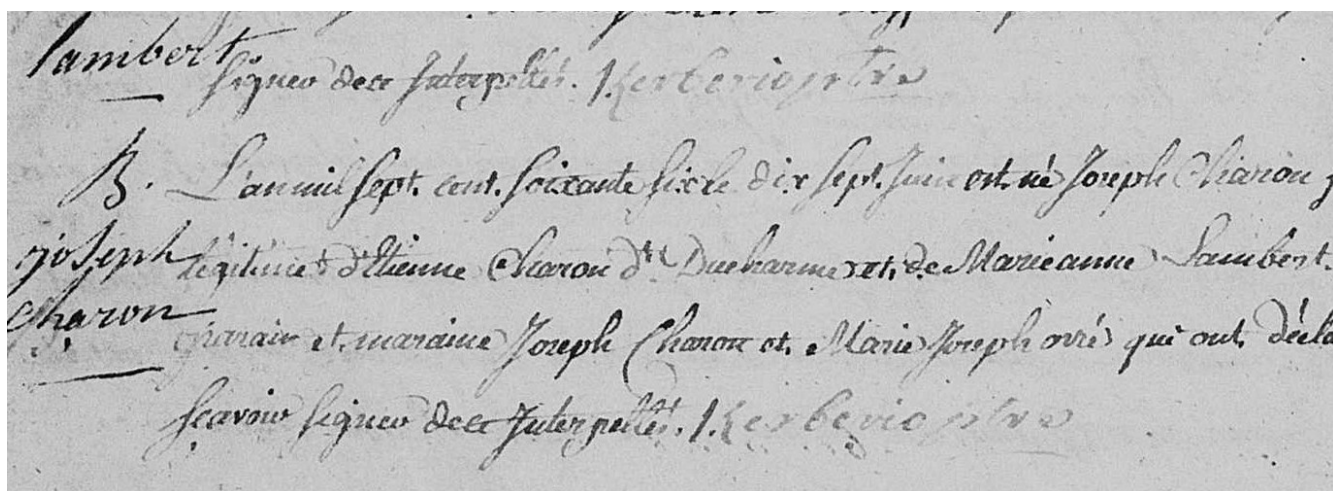 Lambert
signer de ce Interpellés. / Kerberio ptre
B. L'an mil sept cent soixante six le dix sept Juin est né Joseph Charon
Joseph légitime d'Etienne Charon dt Ducharme et de Marieanne Lambert.
Charon parain et maraine Joseph Charon et Marie Joseph orré qui ont décla
scavoir signer de ce Interpellés. / Kerberio ptre